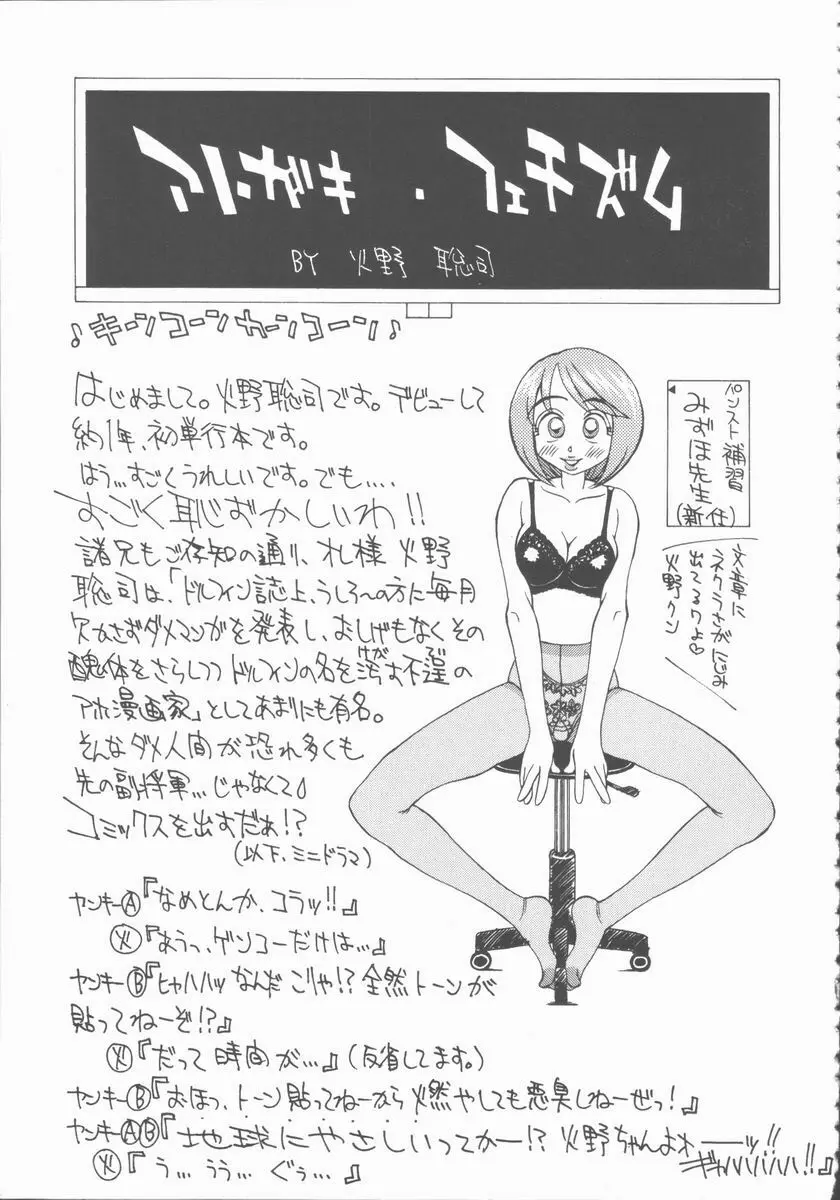 フューチャー・サチニア
BY 火野 聡司
♪キーンコーンカーンコーン♪
はじめまして。火野聡司です。デビューして
約1年、初単行本です。
はう…すごくうれしいです。でも‥‥
すごく恥ずかしいわ!!
諸兄もご存知の通り、オレ様 火野
聡司は、「ドルフィン誌上、うしろへの方に毎月
欠かさずダメマンガを発表し、おしげもなくその
醜体をさらしつつドルフィンの名を汚す不逞の
けが
てい
アホ漫画家」としてあまりにも有名。
そんなダメ人間が恐れ多くも
先の副将軍…じゃなくて♪
コミックスを出すだぁ!?
(以下、ミニドラマ)
ヤンキーⒶ『なめとんか、コラッ!!』
㊋『あうっ、ゲンコーだけは…』
ヤンキーⒷ『ヒャハハッ なんだ こりゃ!? 全然トーンが
貼ってねーぞ!?』
㊋『だって 時間が…』(反省してます。)
ヤンキーⒷ『おほっ、トーン貼ってねーから燃やしても悪臭しねーぜっ!』
ヤンキーⒶⒷ『地球にやさしいってかー!? 火野ちゃんよぉーーッ!!
ギャハハハハ!!』
㊋『う… うう… ぐぅ…』
◀パンスト補習
みずほ先生
(新任)
文章に
ネクラさがにじみ
出てるワよ♡
火野クン